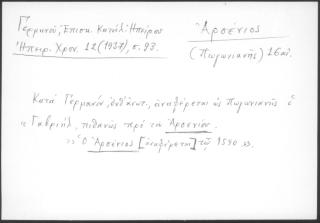 Γερμανοῦ, Ἐπισκ. Κατάλ. Ἠπείρος
Ἠπειρ. Χρον. 12 (1937), σ. 93.
Ἀρσένιος
(Πωγωνιανῆς) 16 αἰ.
Κατὰ Γερμανόν, ἐνθ' ἀνωτ., ἀναφέρεται ὡς Πωγωνιανῆς ὁ
Γαβριήλ, πιθανῶς πρὸ τοῦ Ἀρσενίου.
Ὁ Ἀρσένιος [ἀναφέρεται] τῷ 1540